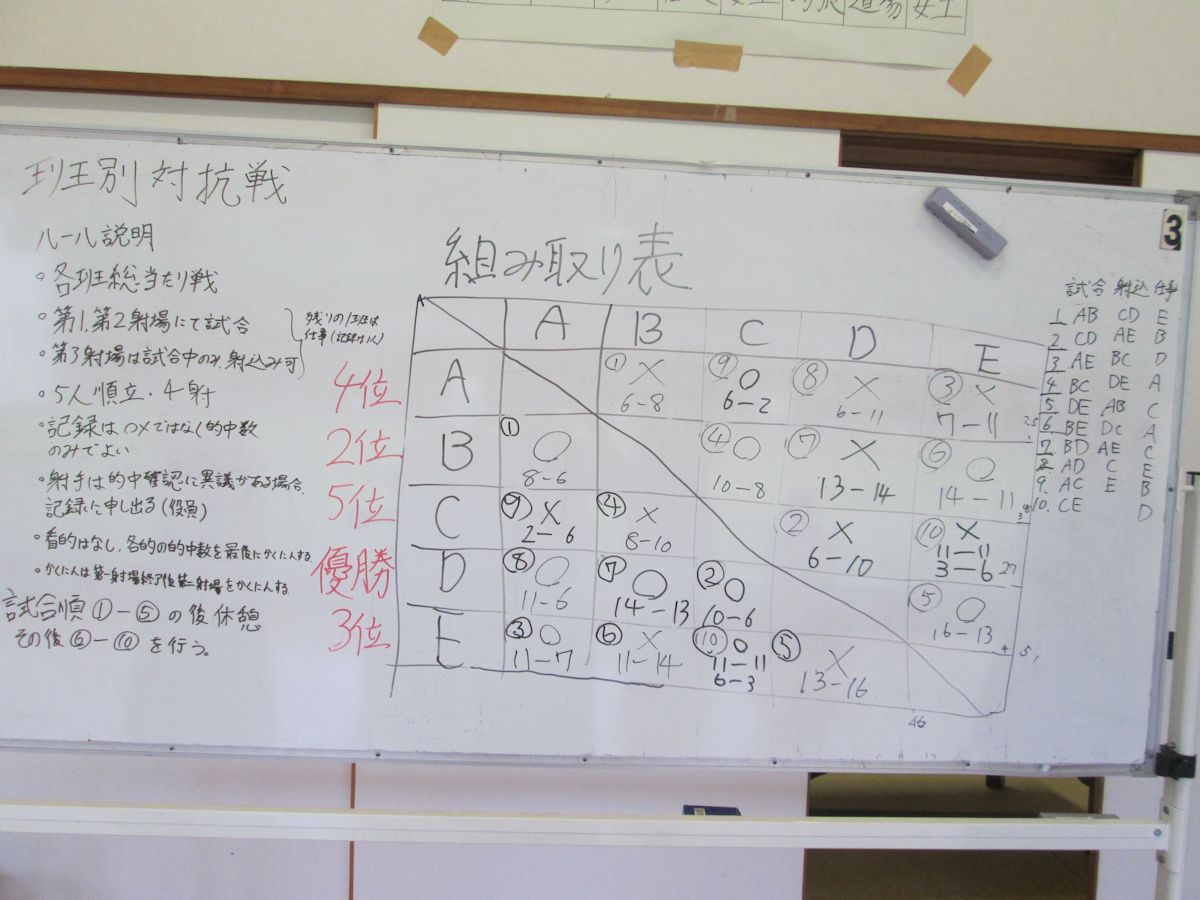 道場 女工
3
班別対抗戦
ルール説明
・各班総当たり戦
・第1,第2射場にて試合
・第3射場は試合中のみ,射込み可
残りの1班は
仕事(記録1人)
・5人順立・4射
・記録は○×ではなく的中数
のみでよい
・射手は的中確認に異議がある場合,
記録に申し出る(役員)
・看的はなし,各的の的中数を最後にかくにんする
・かくにんは第一射場終了後第二射場をかくにんする
試合順①ー⑤の後休憩
その後⑥ー⑩を行う。
組み取り表
A B C D E
4位 A ①× 6-8 ⑨○ 6-2 ⑧× 6-11 ③× 7-11
2位 B ①○ 8-6 ④○ 10-8 ⑦× 13-14 ⑥○ 14-11
5位 C ⑨× 2-6 ④× 8-10 ②× 6-10 ⑩× 11-11 3-6 27
優勝 D ⑧○ 11-6 ⑦○ 14-13 ②○ 10-6 ⑤○ 16-13
3位 E ③○ 11-7 ⑥× 11-14 ⑩○ 11-11 6-3 ⑤× 13-16
46
試合 射込 仕事
1 AB CD E
2 CD AE B
3 AE BC D
4 BC DE A
5 DE AB C
6 BE DC A
7 BD AE C
8 AD C E
9. AC E B
10. CE D